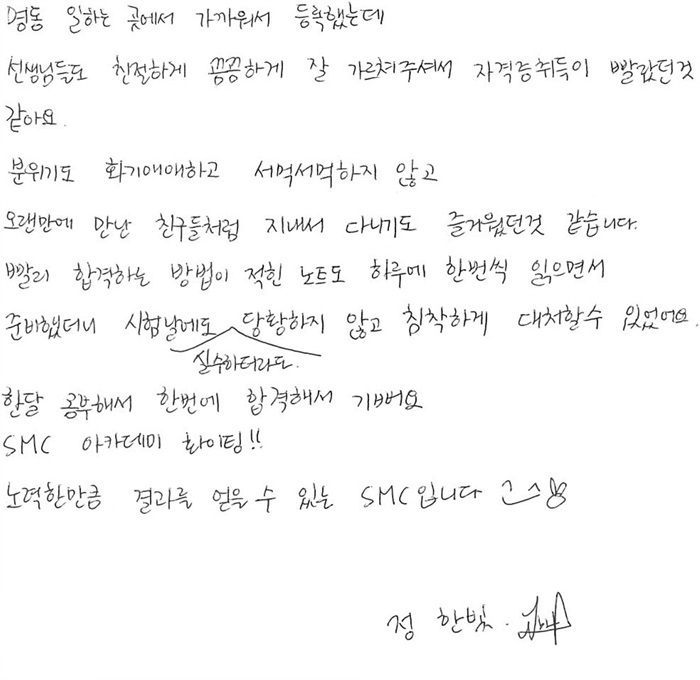 명동 일하는 곳에서 가까워서 등록했는데
선생님들도 친절하게 꼼꼼하게 잘 가르쳐주셔서 자격증취득이 빨랐던것
같아요.
분위기도 화기애애하고 서먹서먹하지 않고
오랜만에 만난 친구들처럼 지내서 다니기도 즐거웠던것 같습니다.
빨리 합격하는 방법이 적힌 노트도 하루에 한번씩 읽으면서
준비했더니 시험날에도 당황하지 않고 침착하게 대처할수 있었어요.
실수하더라도.
한달 공부해서 한번에 합격해서 기뻐요
SMC 아카데미 화이팅!!
노력한만큼 결과를 얻을 수 있는 SMC입니다
정 한빛.